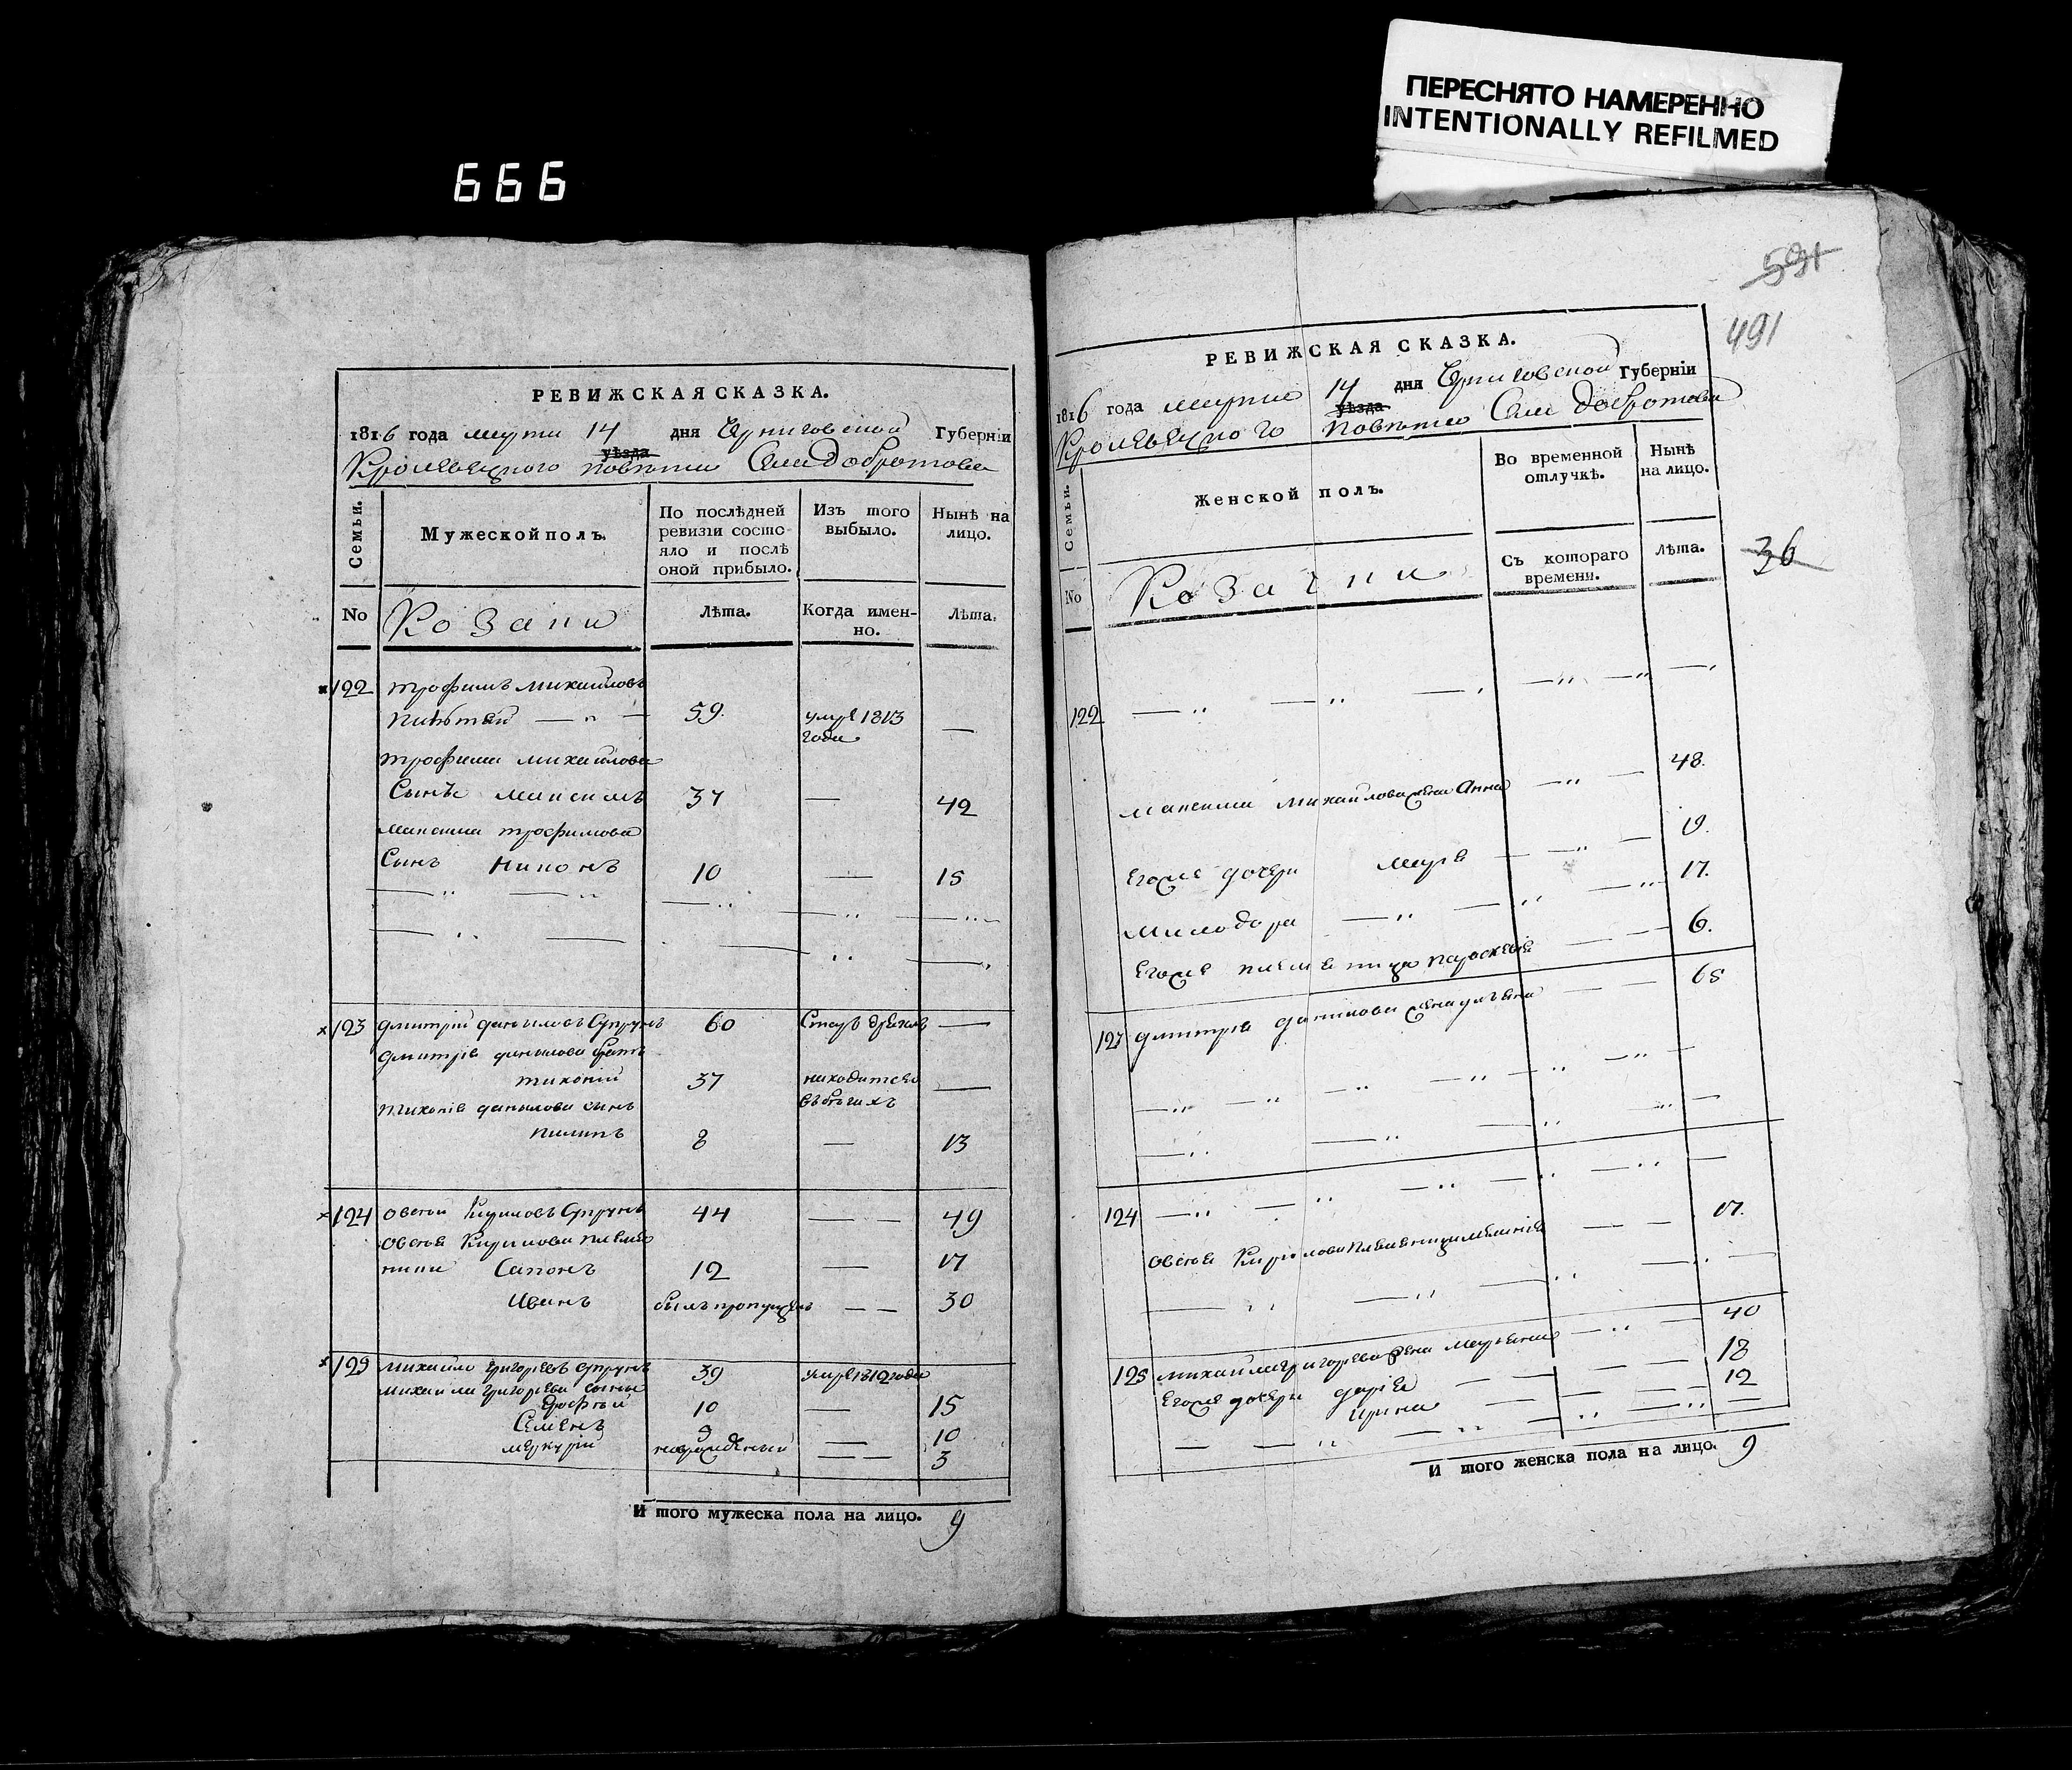 ПЕРЕСНЯТО НАМЕРЕННО
INTENTIONALLY REFILMED
666
РЕВИЖСКАЯ СКАЗКА.
1816 года марта 14 дня Черниговской Губерніи
уѣзда
Кролевецкого повѣта Села Добротова
Семьи.
Мужеской полъ.
По послѣдней ревизіи состояло и послѣ оной прибыло.
Изъ того выбыло.
Нынѣ на лицо.
No
Козаки
Лѣта.
Когда именно.
Лѣта.
122 трофимъ михайловъ
59. умре 1813 года —
трофима михайлова
Сынъ максимъ 37 — 42
максима трофимова
Сынъ Никонъ 10 — 15
123 дмитрій даныловъ Супрунъ 60 —
дмитрія данылова братъ
тихоній 37 находится въ бѣгахъ —
тихонія данылова сынъ
пилипъ 8 — 13
124 овсій Кириловъ Супрунъ 44 — — 49
овсія Кирилова племя
ники Сапонъ 12 — 17
Иванъ былъ пропущенъ — — 30
125 михайло григорьевъ Супрунъ 39 умре 1812 года
михайла григорьева сыны
10 — 15
Семенъ 5 — 10
меркурій новорожденный — — 3
И того мужеска пола на лицо. 9
591
491
РЕВИЖСКАЯ СКАЗКА.
1816 года марта 14 дня Черниговской Губерніи
уѣзда
Кролевецкого повѣта Села Добротова
Семьи.
Женской полъ.
Во временной отлучкѣ.
Нынѣ на лицо.
No
Козачки
Съ котораго времени.
Лѣта.
36
122
максима михайлова жена Анна — 48.
егоже дочери марія — 19.
милодора — 17.
егоже племѣница параскевія — 6.
123 дмитрія данилова жена ульяна — 65
124
овсія Кирилова племѣница меланія — 17.
125 михайла григорьева жена марьяна — 40
егоже дочери дарія — 18
ирина — 12
И того женска пола на лицо. 9